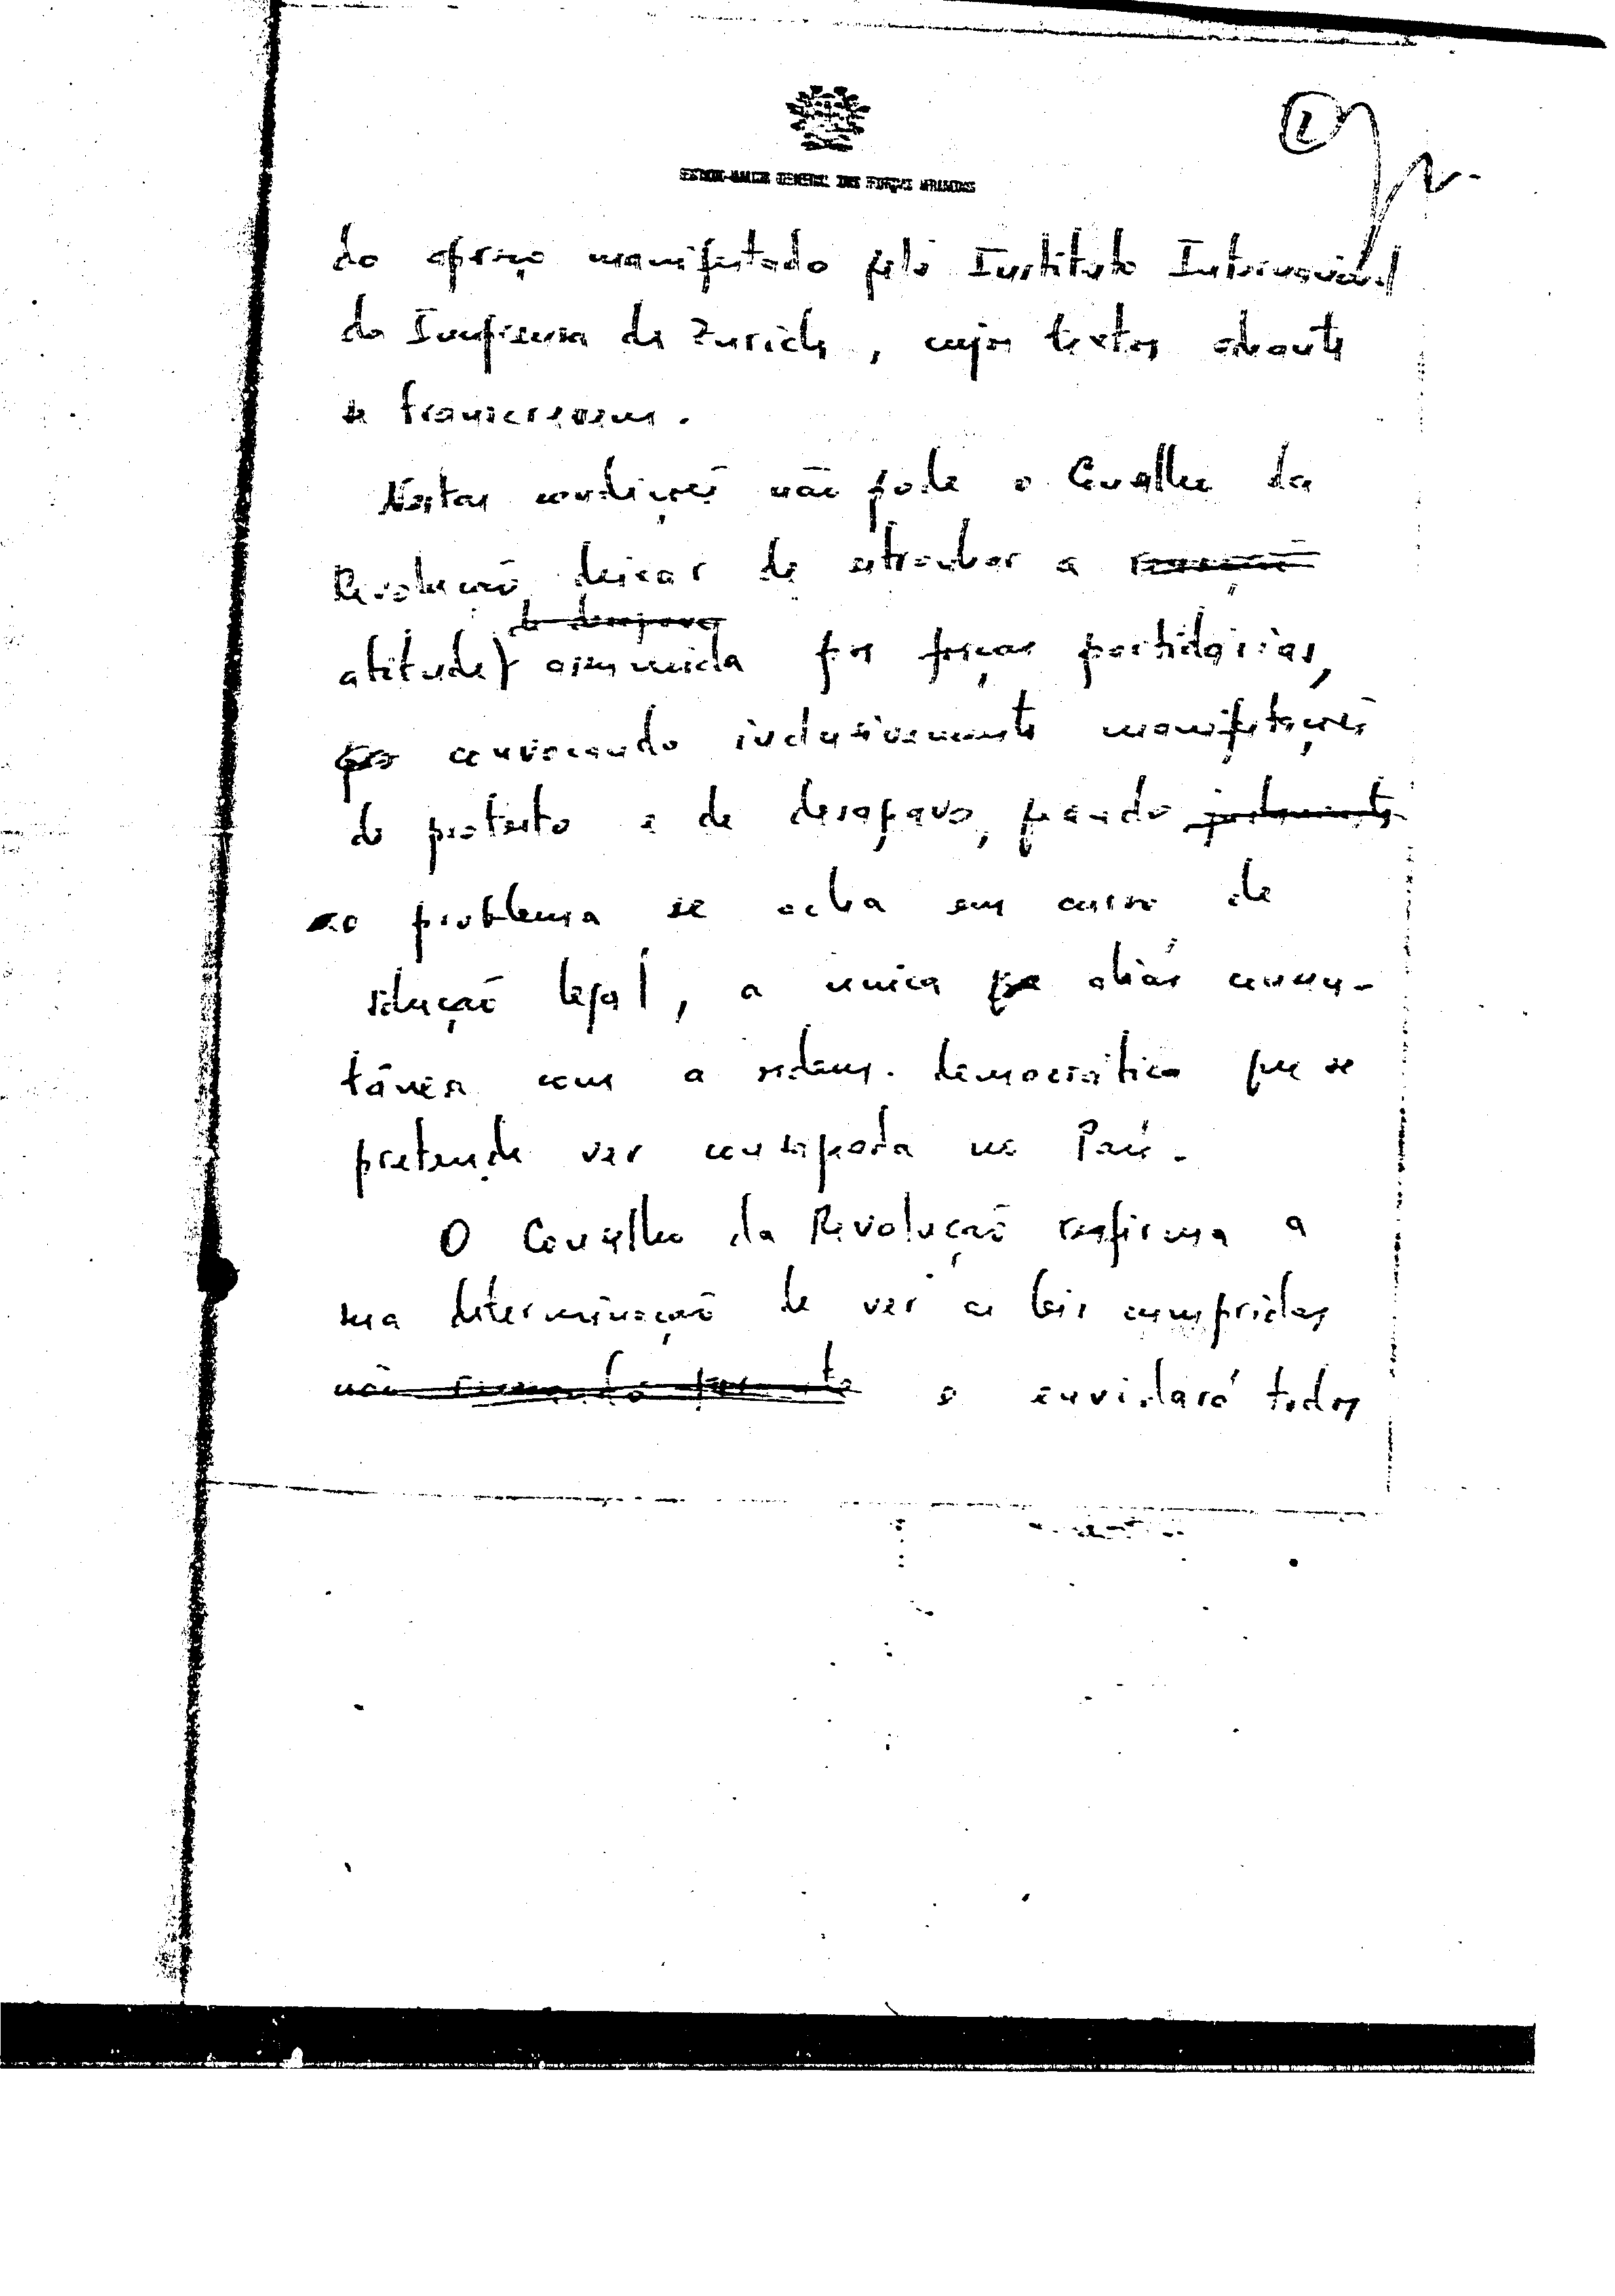 2
ESTADO-MAIOR GENERAL DAS FORÇAS ARMADAS
do apreço manifestado pelo Instituto Internacional
da Imprensa de Zurich, cujos textos adeante
se transcrevem.
Nestas condições não pode o Conselho da
Revolução deixar de estranhar a
de desagravo
atitude assumida por forças partidárias,
convocando inclusivamente manifestações
de protesto e de desagravo, quando justamente
o problema se acha em curso de
solução legal, a unica que aliás consen-
tânea com a ordem democrática que se
pretende ver consagrada no País.
O Conselho da Revolução reafirma a
sua determinação de ver as leis cumpridas
não e envidará todos